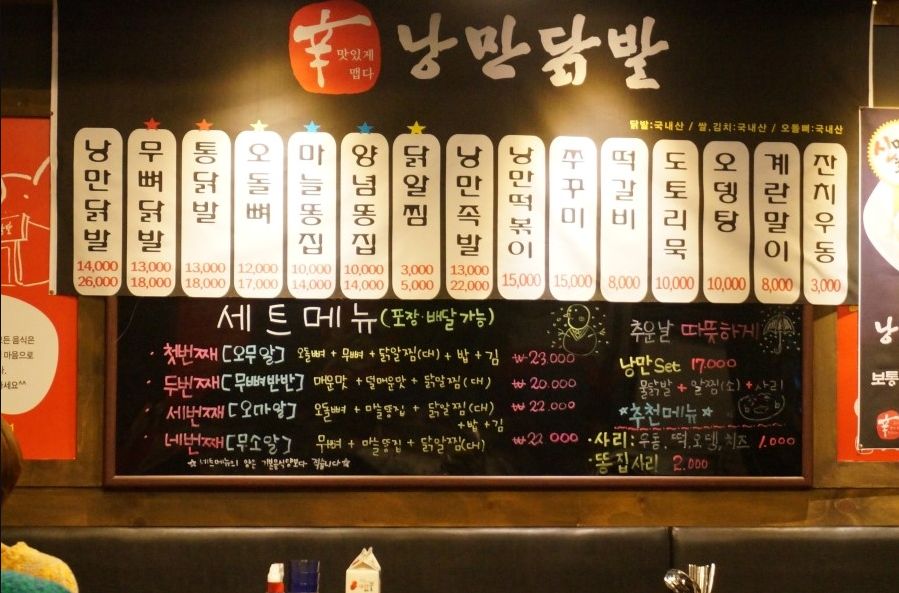 辛
맛있게
맵다
낭만닭발
닭발:국내산 / 쌀,김치:국내산 / 오돌뼈:국내산
낭만닭발
14,000
26,000
무뼈닭발
13,000
18,000
통닭발
13,000
18,000
오돌뼈
12,000
17,000
마늘똥집
10,000
14,000
양념똥집
10,000
14,000
닭알찜
3,000
5,000
낭만족발
13,000
22,000
낭만떡볶이
15,000
쭈꾸미
15,000
떡갈비
8,000
도토리묵
10,000
오뎅탕
10,000
계란말이
8,000
잔치우동
3,000
세트메뉴(포장·배달 가능)
· 첫번째 [오무알] 오돌뼈 + 무뼈 + 닭알찜(대) + 밥 + 김 ₩23.000
· 두번째 [무뼈반반] 매운맛 + 덜매운맛 + 닭알찜(대) ₩20.000
· 세번째 [오마알] 오돌뼈 + 마늘똥집 + 닭알찜(대) ₩22.000
+ 밥 + 김
· 네번째 [무소알] 무뼈 + 마늘똥집 + 닭알찜(대) ₩22 000
☆ 세트메뉴의 양은 기본음식양보다 적습니다 ☆
추운날 따뜻하게
낭만 Set 17.000
물닭발 + 알찜(소) + 사리
☆추천메뉴☆
· 사리 : 우동, 떡, 오뎅, 치즈 1.000
· 똥집사리 2.000
든 음식은
마음으로
세요^^
낭
보통
辛